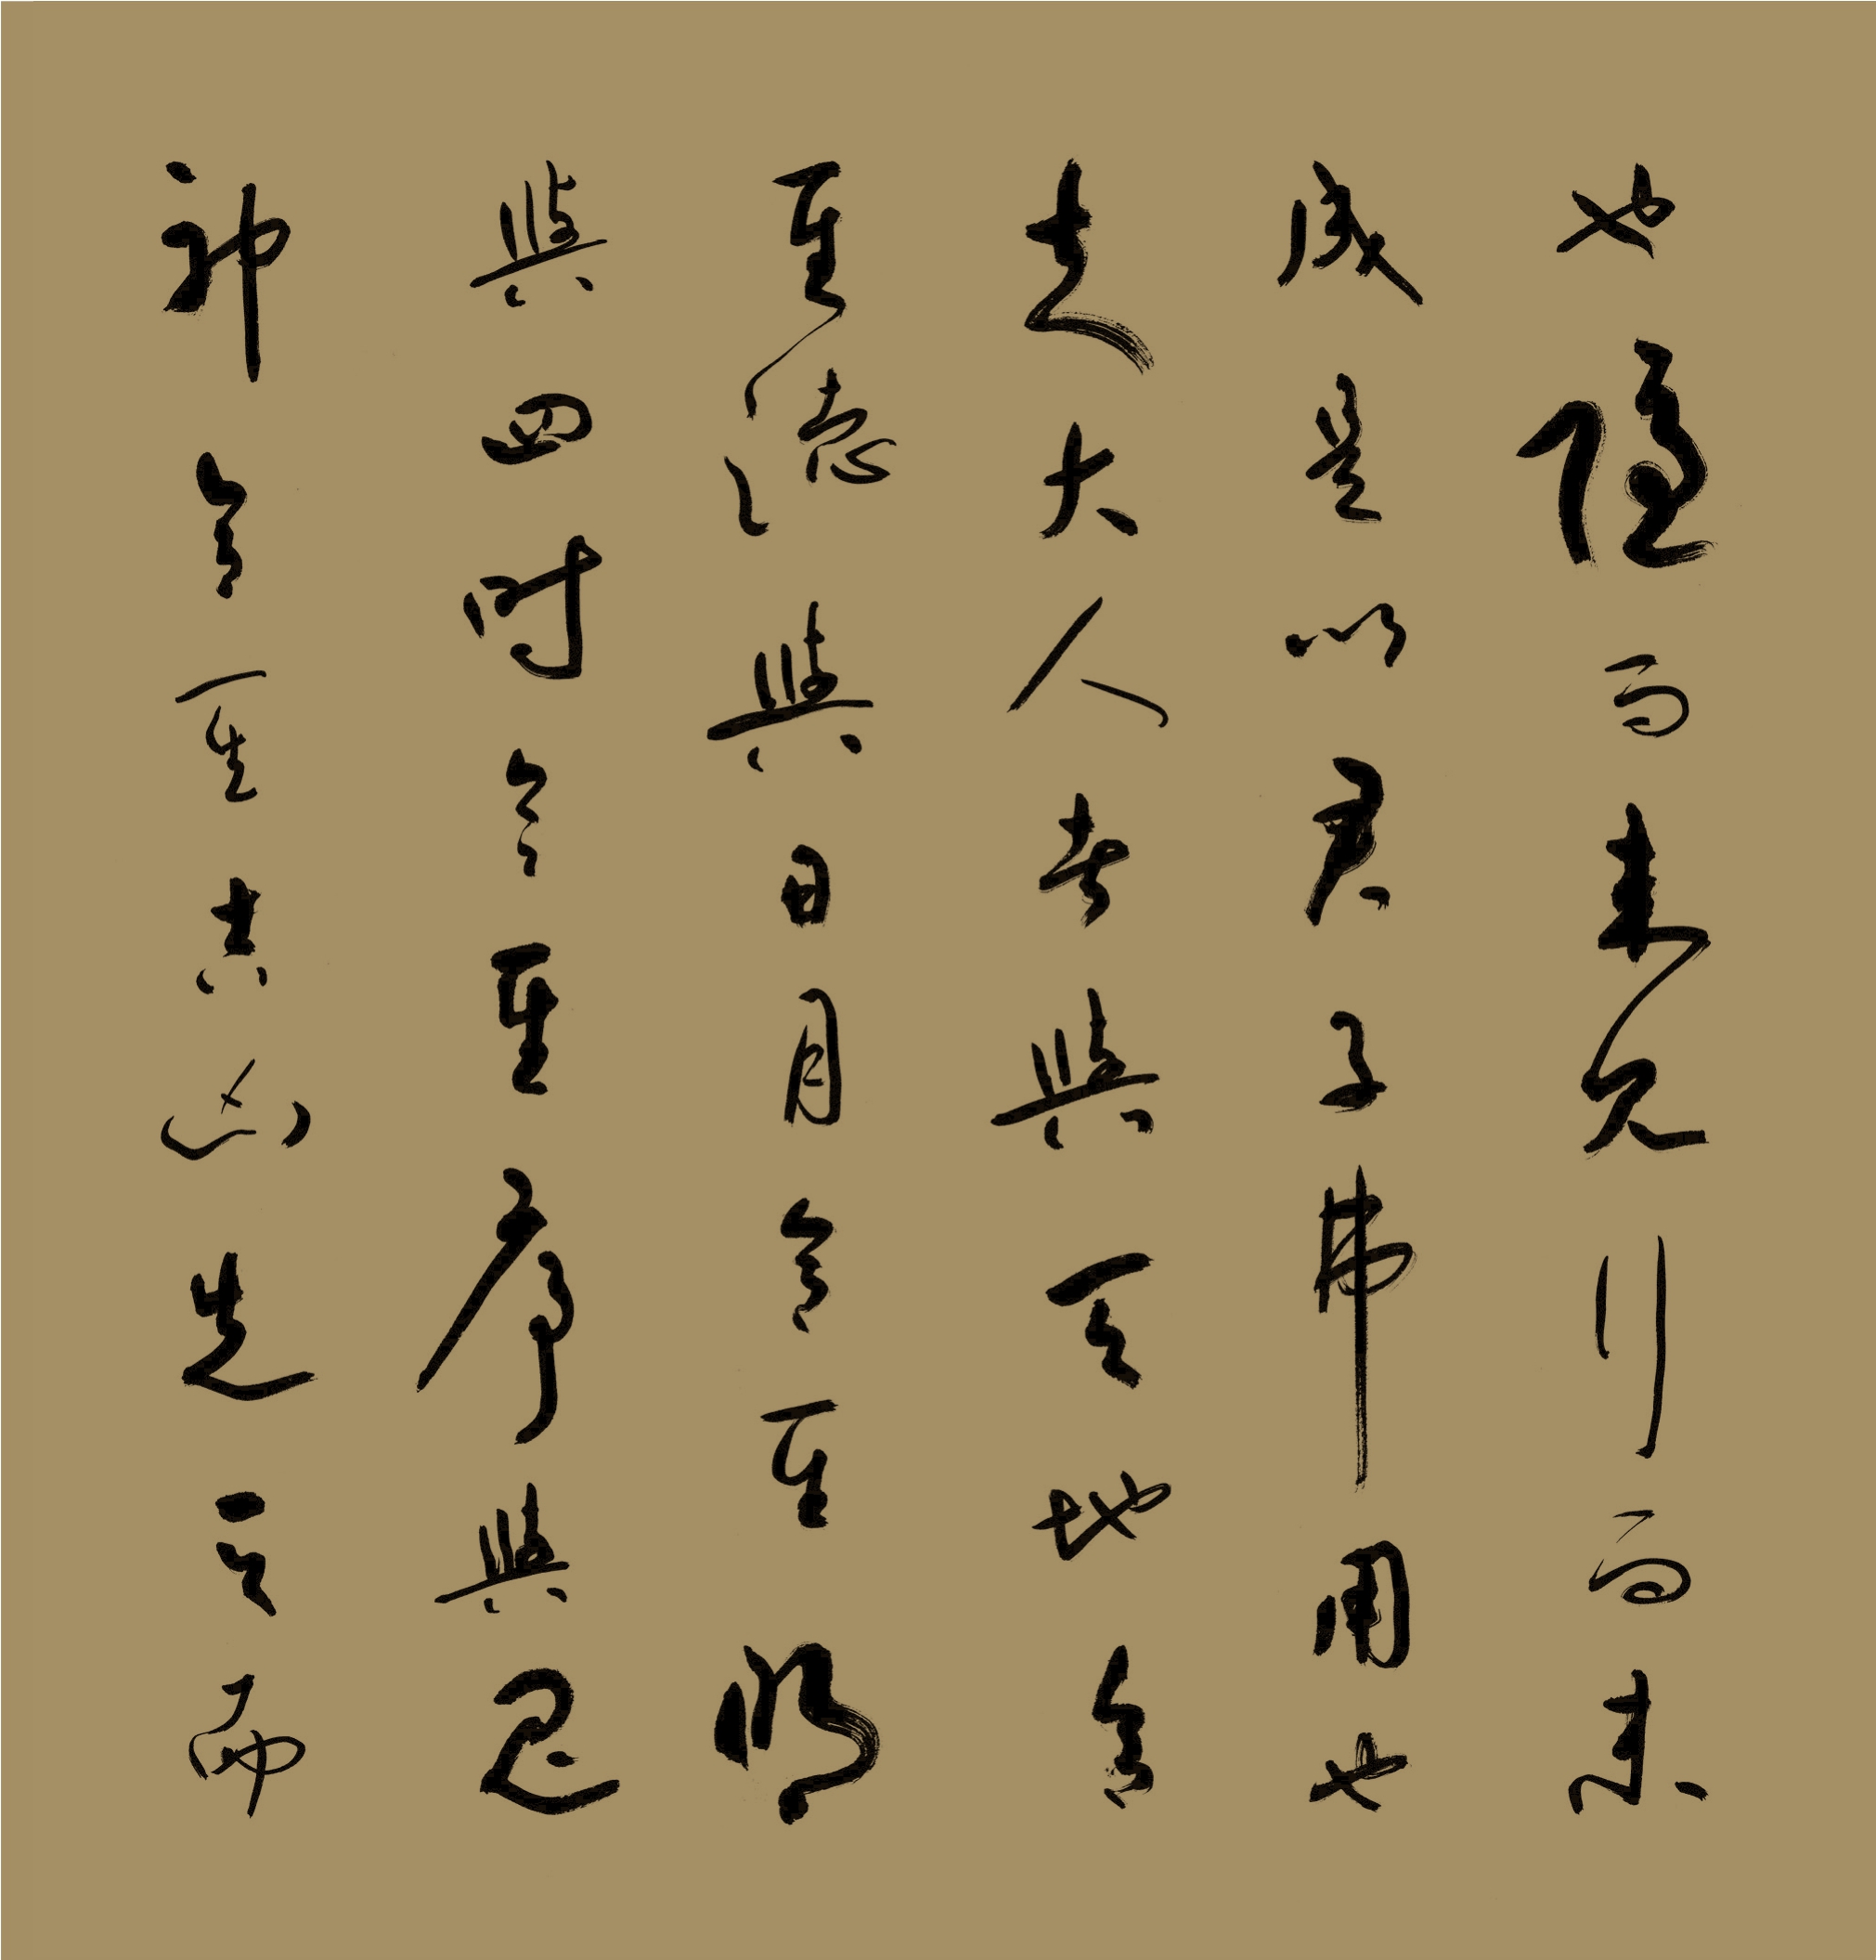 也隱而未見行而未
成是以君子弗用也
夫大人者與天地合
其德與日月合其明
與四時合其序與鬼
神合其吉凶先天而